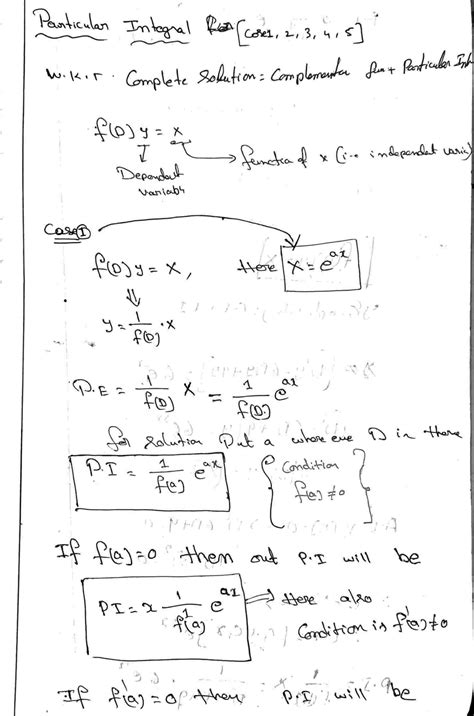 Particular Integral [case 1, 2, 3, 4, 5]
W.K.T. Complete Solution = Complementar fun + Particular Int
f(D) y = x
function of x (i.e independent varia)
Dependent
variable
Case I
f(D) y = X, Here X = e^{ax}
⇓
y = 1/f(D) · X
P.E = 1/f(D) X = 1/f(D) e^{ax}
for solution put a where eve D is there
P.I = 1/f(a) e^{ax} { Condition f(a) ≠ 0 }
If f(a) = 0 then out P.I will be
PI = x 1/f'(a) e^{ax} ⇒ Here also
Condition is f'(a) ≠ 0
If f'(a) = 0 then P.I will be